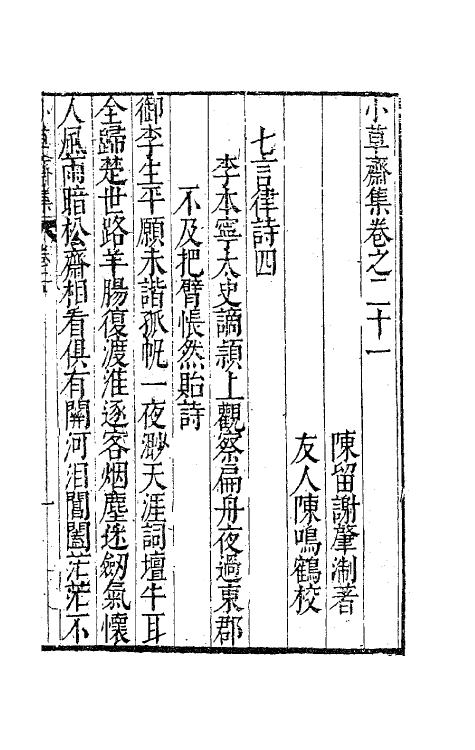 小草齋集卷之二十一
陳留謝肇淛著
友人陳鳴鶴校
七言律詩四
李本寧太史謫潁上觀察扁舟夜過東郡
不及把臂悵然貽詩
御李生平願未諧孤帆一夜渺天涯詞壇牛耳
全歸楚世路羊腸復渡淮逐客烟塵迷劒氣懷
人風雨暗松齋相看俱有關河泪閶闔茫茫不